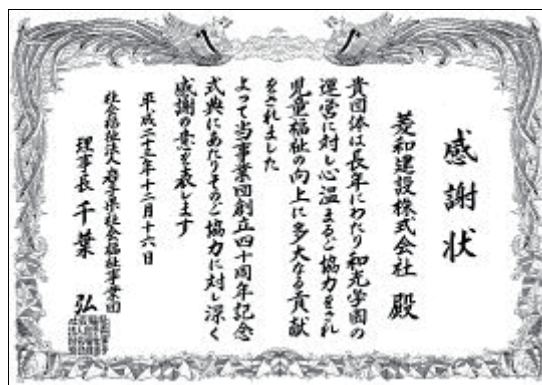 感謝状
菱和建設株式会社 殿
貴団体は長年にわたり和光学園の
運営に対し心温まるご協力をされ
児童福祉の向上に多大なる貢献
をされました
よって当事業団創立四十周年記念
式典にあたりそのご協力に対し深く
感謝の意を表します
平成二十三年十二月十六日
社会福祉法人岩手県社会福祉事業団
理事長 千葉 弘